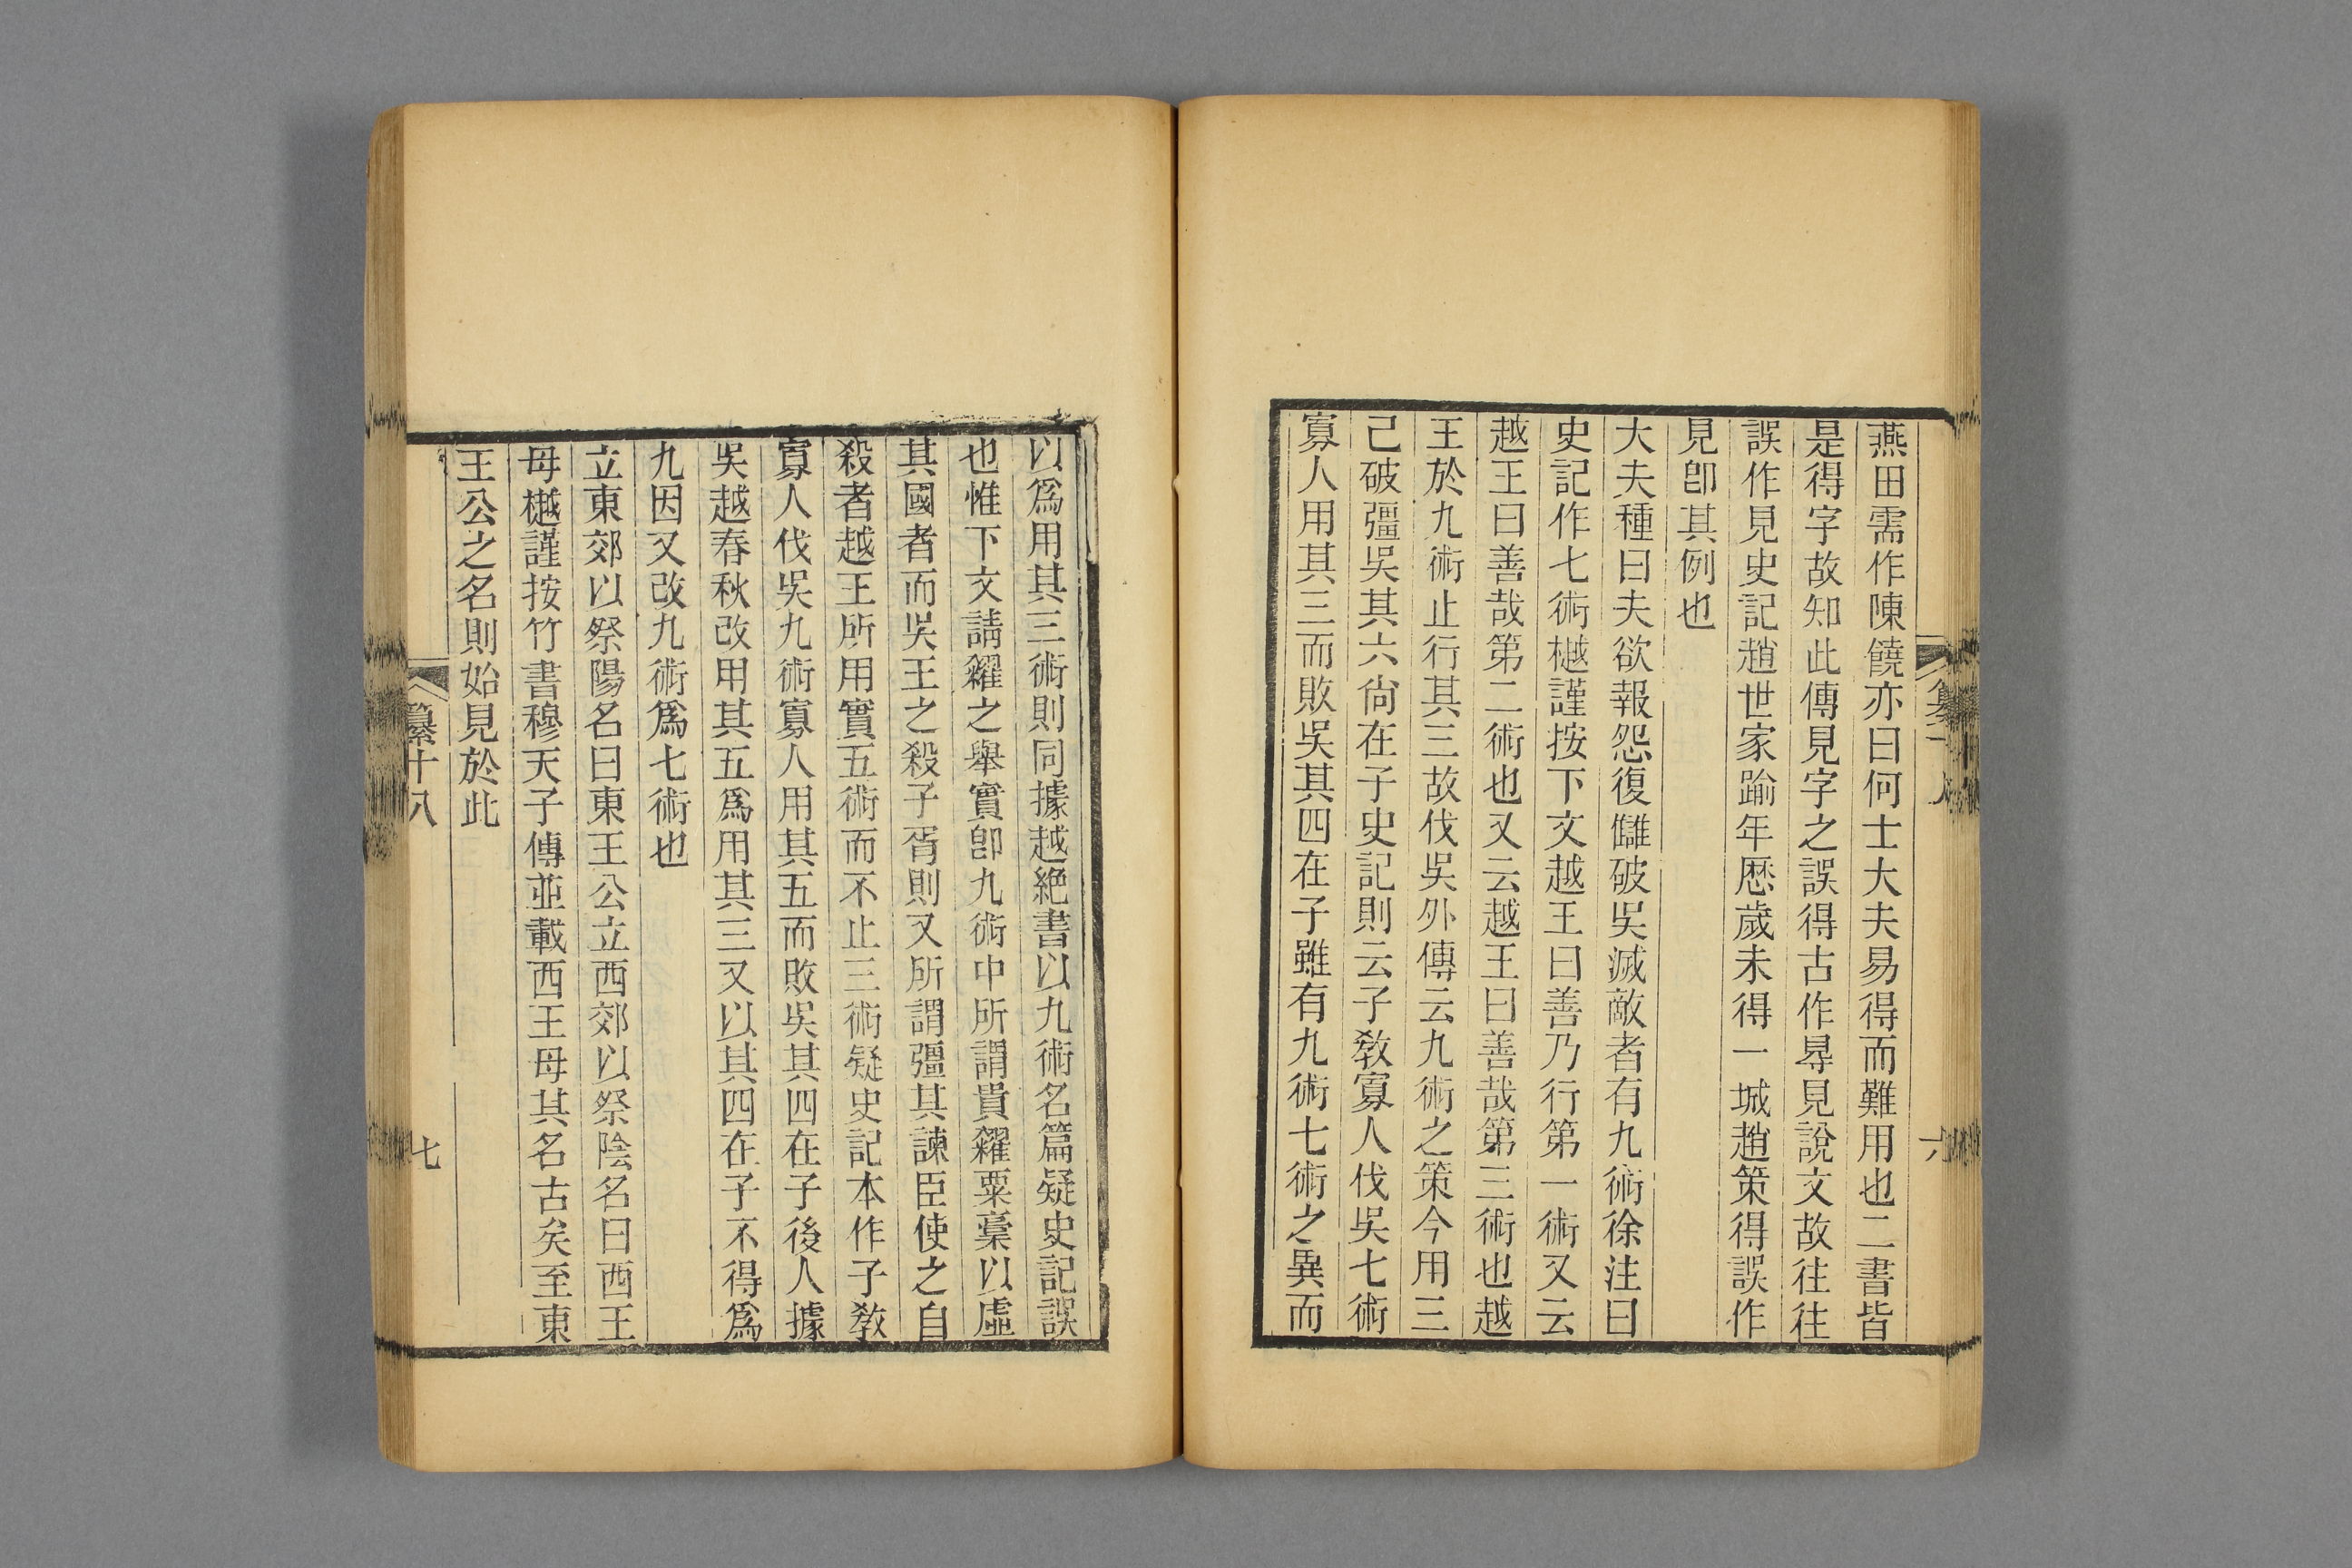 燕田需作陳饒亦曰何士大夫易得而難用也二書皆
是得字故知此傳見字之誤得古作㝵見說文故往往
誤作見史記趙世家踰年歷歲未得一城趙策得誤作
見卽其例也
大夫種曰夫欲報怨復讎破吳滅敵者有九術徐注曰
史記作七術樾謹按下文越王曰善乃行第一術又云
越王曰善哉第二術也又云越王曰善哉第三術也越
王於九術止行其三故伐吳外傳云九術之策今用三
己破彊吳其六尙在子史記則云子敎寡人伐吳七術
寡人用其三而敗吳其四在子雖有九術七術之異而
以爲用其三術則同據越絕書以九術名篇疑史記誤
也惟下文請糴之舉實卽九術中所謂貴糴粟槀以虛
其國者而吳王之殺子胥則又所謂彊其諫臣使之自
殺者越王所用實五術而不止三術疑史記本作子敎
寡人伐吳九術寡人用其五而敗吳其四在子後人據
吳越春秋改用其五爲用其三又以其四在子不得爲
九因又改九術爲七術也
立東郊以祭陽名曰東王公立西郊以祭陰名曰西王
母樾謹按竹書穆天子傳並載西王母其名古矣至東
王公之名則始見於此
纂十八
七